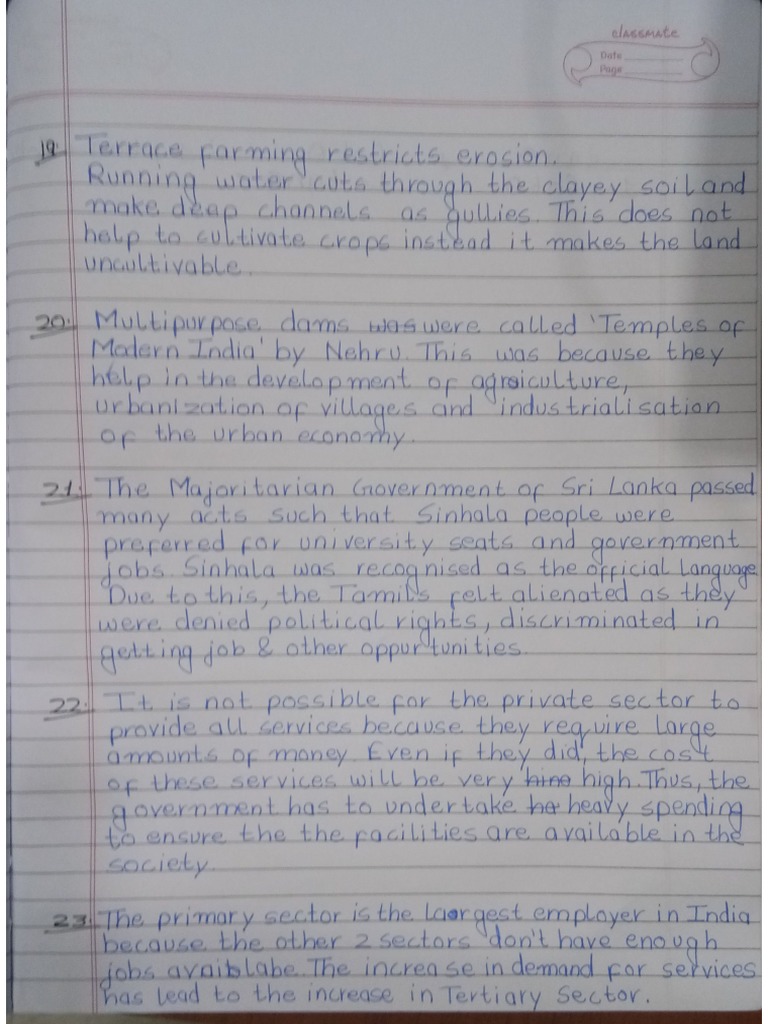 classmate
Date
Page
19. Terrace farming restricts erosion.
Running water cuts through the clayey soil and
make deep channels as gullies. This does not
help to cultivate crops instead it makes the land
uncultivable.
20. Multipurpose dams was were called 'Temples of
Modern India' by Nehru. This was because they
help in the development of agriculture,
urbanization of villages and industrialisation
of the urban economy.
21. The Majoritarian Government of Sri Lanka passed
many acts such that Sinhala people were
preferred for university seats and government
jobs. Sinhala was recognised as the official language
Due to this, the Tamils felt alienated as they
were denied political rights, discriminated in
getting job & other oppurtunities.
22. It is not possible for the private sector to
provide all services because they require large
amounts of money. Even if they did, the cost
of these services will be very high. Thus, the
government has to undertake he heavy spending
to ensure the the facilities are available in the
society.
23. The primary sector is the largest employer in India
because the other 2 sectors don't have enough
jobs avaiblabe. The increase in demand for services
has lead to the increase in Tertiary Sector.